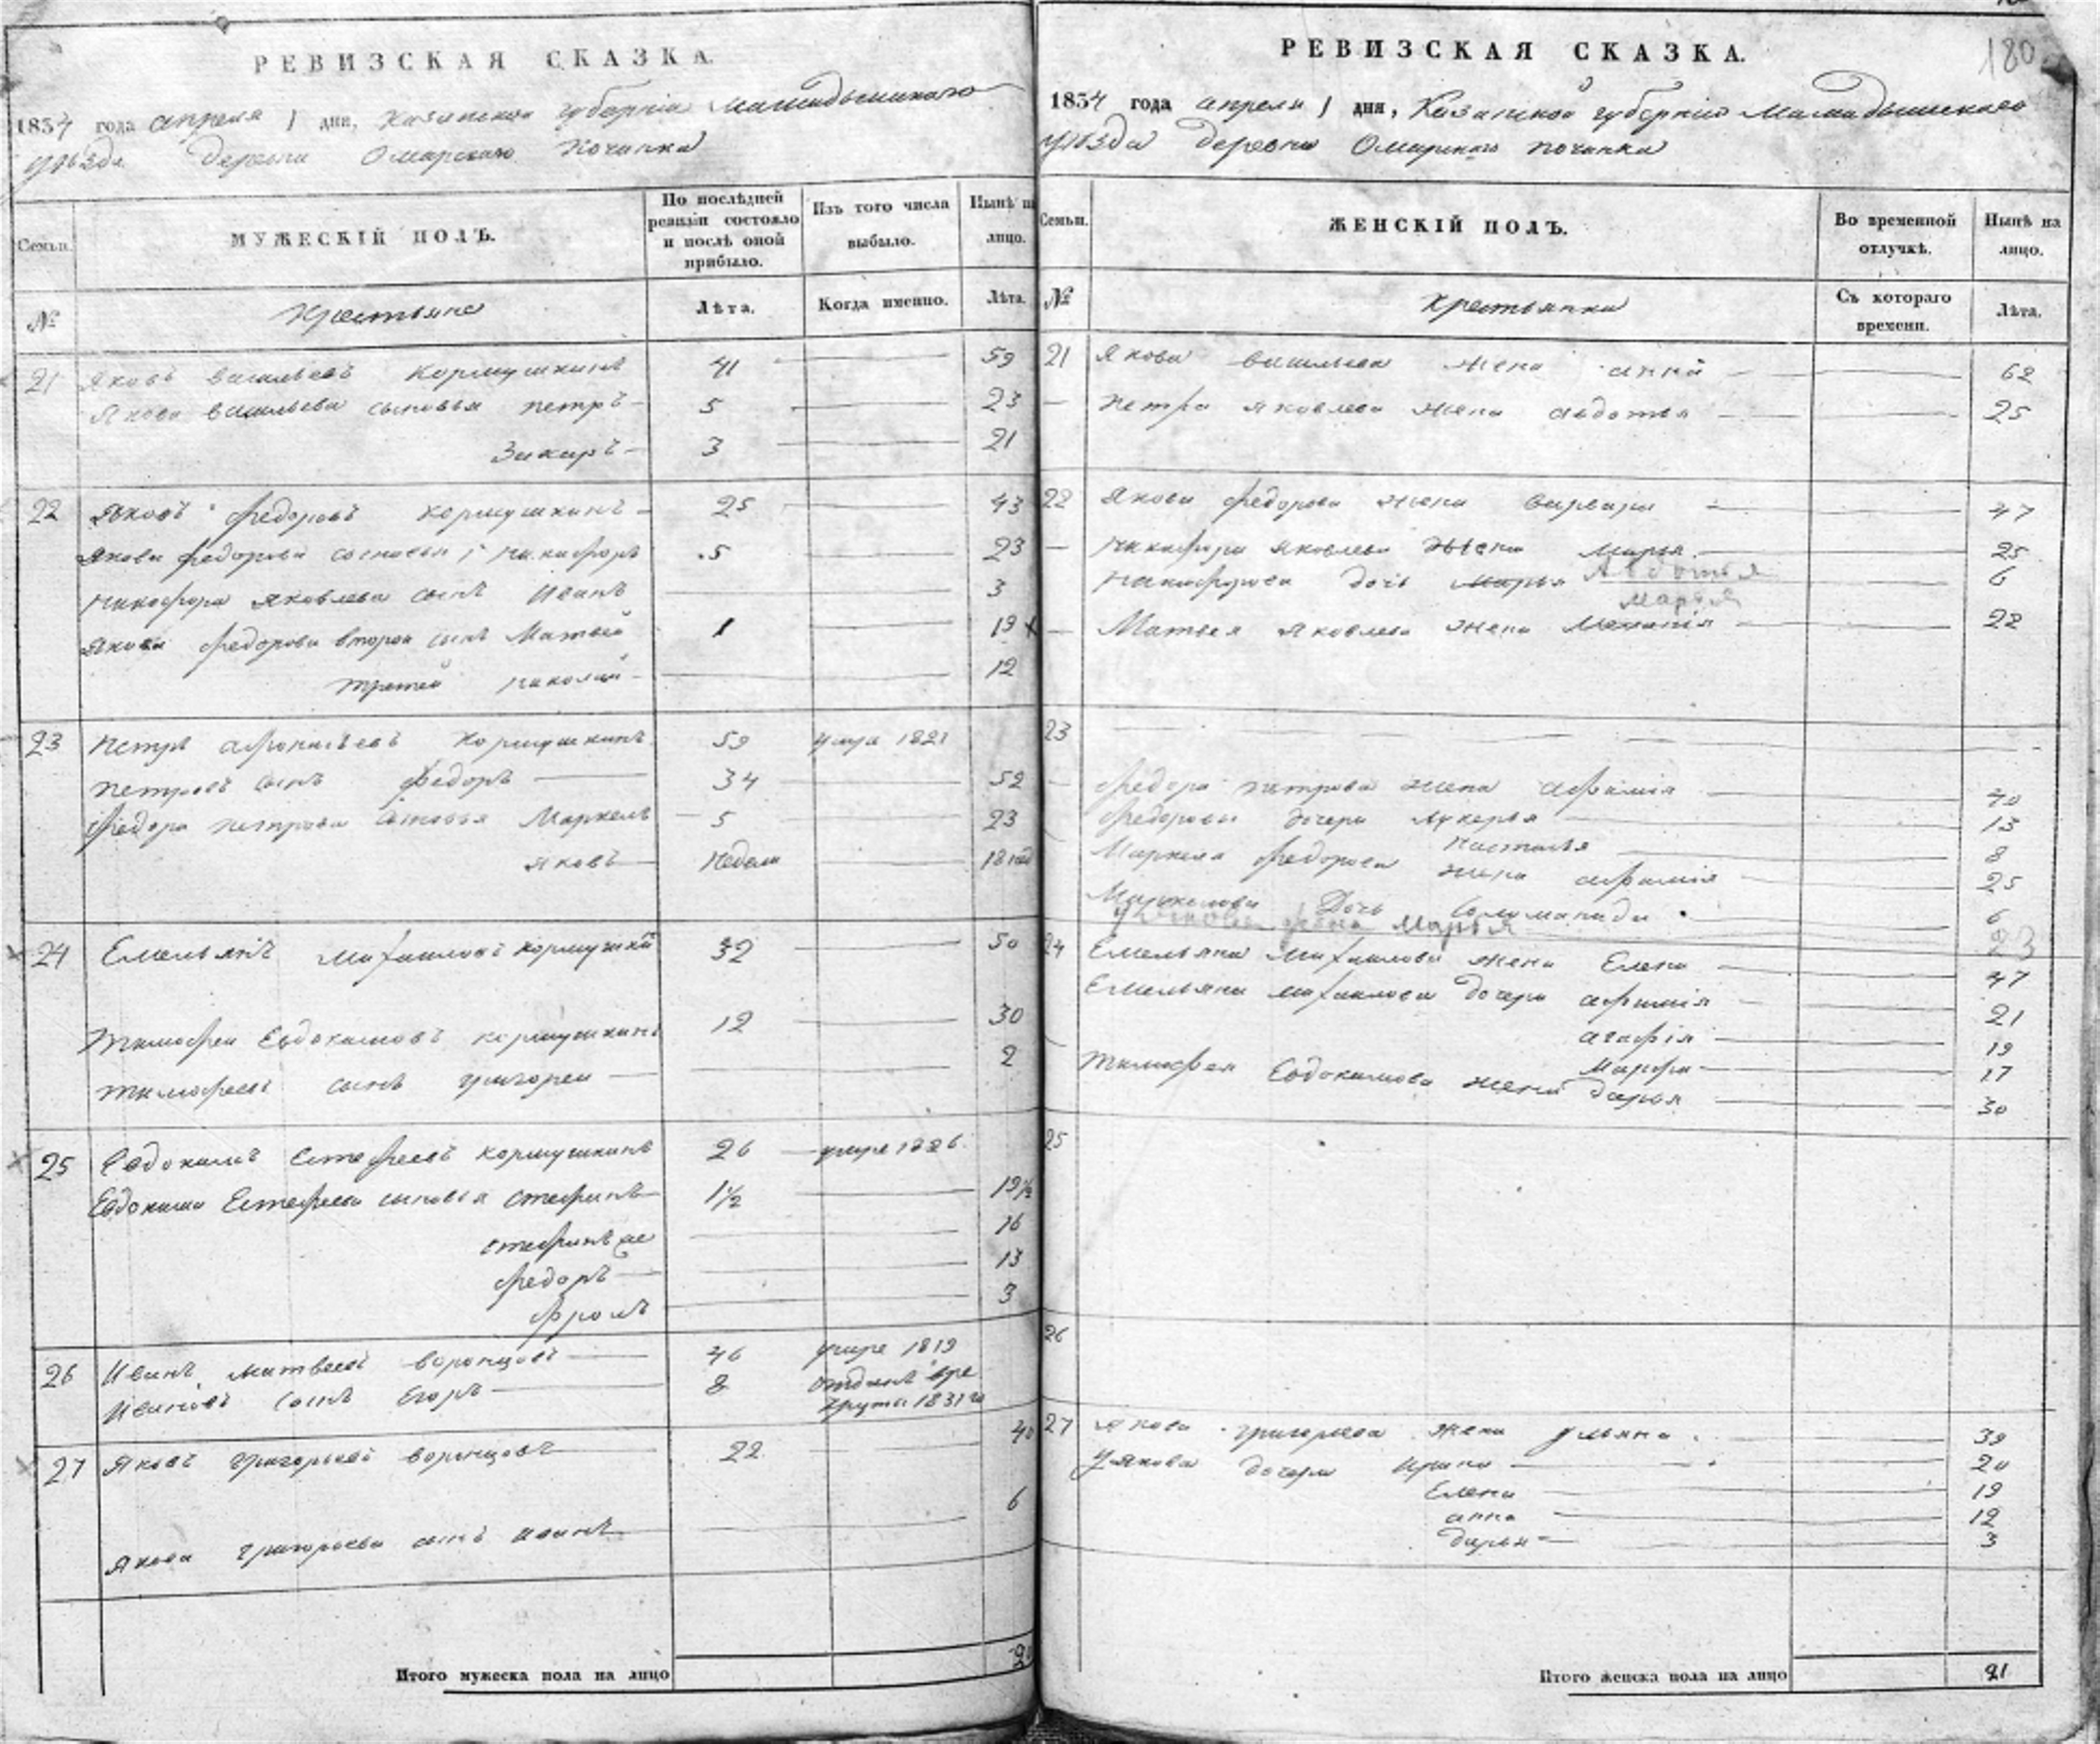 РЕВИЗСКАЯ СКАЗКА.
1834 года апреля 1 дня, Казанской губернiи Мамадышскаго
уѣзда Деревни Омарскаго Починка
Семьи.
МУЖЕСКIЙ ПОЛЪ.
По послѣдней ревизiи состояло и послѣ оной прибыло.
Изъ того числа выбыло.
Нынѣ на лицо.
№
Крестьяне
Лѣта.
Когда именно.
Лѣта.
21 Яковъ Васильевъ Кормушкинъ 41 59
Якова Васильева сыновья Петръ 5 23
Захаръ 3 21
22 Яковъ Федоровъ Кормушкинъ 25 43
Якова Федорова сыновья 1 Никифоръ 5 23
Никифора Яковлева сынъ Иванъ 3
Якова Федорова второй сынъ Матвей 1 19
третей Николай 12
23 Петръ Кормушкинъ 59 умре 1821
Петровъ сынъ Федоръ 34 52
Федора Петрова сыновья Маркелъ 5 23
Яковъ Недели 18
24 Емельянъ Михаиловъ Кормушкинъ 32 50
Тимофеи Евдокимовъ Кормушкинъ 12 30
Тимофеевъ сынъ Григореи 2
25 Евдокимъ Естефеевъ Кормушкинъ 26 умре 1826
Евдокима Естефеева сыновья Стефанъ 1½ 19½
Стефанъ же 16
Федоръ 13
Фролъ 3
26 Иванъ Матвеевъ Воронцовъ 46 умре 1819
Ивановъ сынъ Егоръ 8 отданъ в ре
круты 1831 го
27 Яковъ Григорьевъ Воронцовъ 22 40
Якова Григорьева сынъ Иванъ 6
Итого мужеска пола на лицо
РЕВИЗСКАЯ СКАЗКА.
180
1834 года апреля 1 дня, Казанской губернiи Мамадышскаго
уѣзда Деревни Омарскаго Починка
Семьи.
ЖЕНСКIЙ ПОЛЪ.
Во временной отлучкѣ.
Нынѣ на лицо.
№
Крестьянки
Съ котораго времени.
Лѣта.
21 Якова Васильева жена Анна 62
Петра Яковлева жена Авдотья 25
22 Якова Федорова жена Варвара 47
Никифора Яковлева жена Марья 25
Авдотья
Никифорова дочь Марья 6
Марья
Матвея Яковлева жена Меланiя 22
23
Федора Петрова жена Афимiя 40
Федоровы дочери Лукерья 13
Настасья 8
Маркела Федорова жена Афимiя 25
Маркелова Дочь Соломанида 6
У Якова жена Марья 23
24 Емельяна Михаилова жена Елена 47
Емельяна Михаилова дочери Афимiя 21
Агафiя 19
Марфа 17
Тимофея Евдокимова жена Дарья 30
25
26
27 Якова Григорьева жена Ульяна 39
У Якова дочери Ирина 20
Елена 19
Анна 12
Дарья 3
Итого женска пола на лицо 21